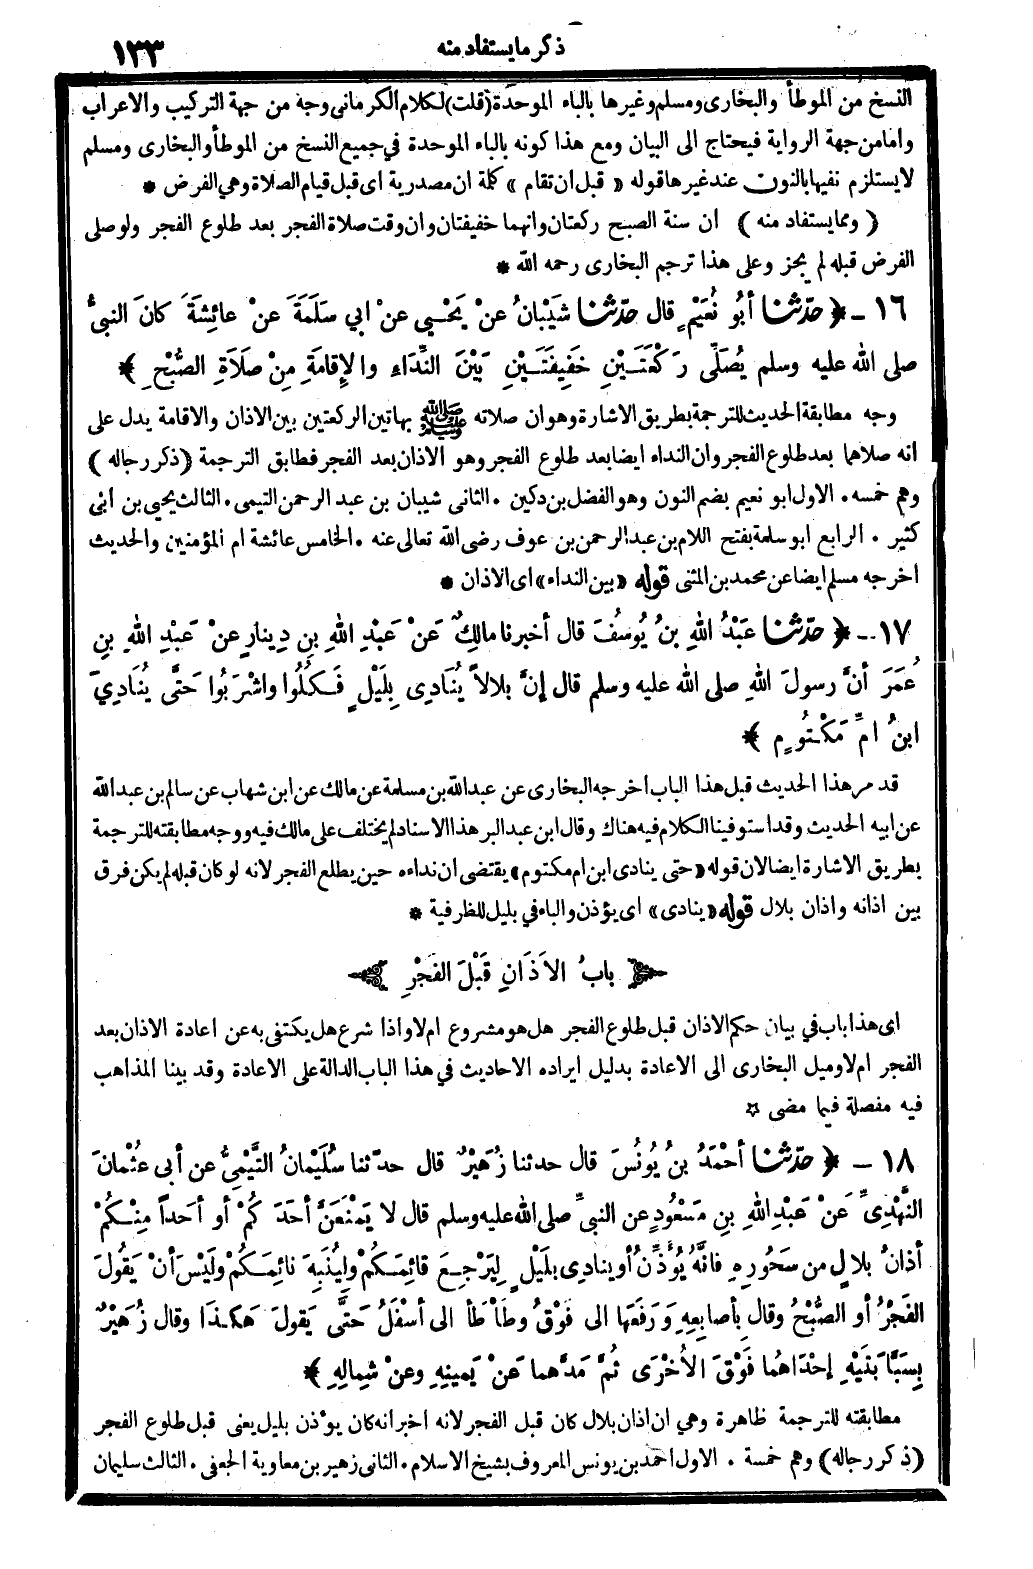 ذكر ما يستفاد منه
١٣٣
النسخ من الموطأ والبخارى ومسلم وغيرها بالباء الموحدة (قلت) لكلام الكرمانى وجه من جهة التركيب والاعراب
وأما من جهة الرواية فيحتاج الى البيان ومع هذا كونه بالباء الموحدة في جميع النسخ من الموطأ والبخارى ومسلم
لا يستلزم نفيها بالنون عند غيرها قوله « قبل ان تقام » كلمة ان مصدرية اى قبل قيام الصلاة وهي الفرض *
( ومما يستفاد منه ) ان سنة الصبح ركعتان وانهما خفيفتان وان وقت صلاة الفجر بعد طلوع الفجر ولو صلى
الفرض قبله لم يجز وعلى هذا ترجم البخارى رحمه الله *
١٦ - ﴿ حدّثنا أبُو نُعَيْمٍ قال حدّثنا شَيْبَانُ عنْ يَحْيى عنْ ابي سَلَمَةَ عنْ عائِشَةَ كانَ النبىُّ
صلى الله عليه وسلم يُصَلِّى رَكْعَتَيْنِ خَفِيفَتَيْنِ بَيْنَ النِّدَاءِ والإِقامَةِ مِنْ صَلَاةِ الصُّبْحِ ﴾ *
وجه مطابقة الحديث للترجمة بطريق الاشارة وهو ان صلاته ﷺ بهاتين الركعتين بين الاذان والاقامة يدل على
أنه صلاهما بعد طلوع الفجر وان النداء ايضا بعد طلوع الفجر وهو الاذان بعد الفجر فطابق الترجمة ( ذكر رجاله )
وهم خمسه . الاول ابو نعيم بضم النون وهو الفضل بن دكين . الثانى شيبان بن عبد الرحمن التيمى . الثالث يحيى بن ابي
كثير . الرابع ابو سلمة بفتح اللام بن عبد الرحمن بن عوف رضى الله تعالى عنه . الخامس عائشة ام المؤمنين والحديث
اخرجه مسلم ايضا عن محمد بن المثنى قوله « بين النداء » اى الاذان *
١٧ - ﴿ حدّثنا عَبْدُ اللهِ بنُ يُوسُفَ قال أخبرنا مالِكٌ عَنْ عَبْدِ اللهِ بنِ دِينارٍ عنْ عَبْدِ اللهِ بنِ
عُمَرَ أنَّ رسولَ اللهِ صلى الله عليه وسلم قال إنَّ بلالاً يُنَادِى بِلَيْلٍ فَكُلُوا واشْرَبُوا حَتَّى يُنَادِيَ
ابنُ امِّ مَكْتُومٍ ﴾ *
قد مر هذا الحديث قبل هذا الباب اخرجه البخارى عن عبدالله بن مسلمة عن مالك عن ابن شهاب عن سالم بن عبدالله
عن ابيه الحديث وقد استوفينا الكلام فيه هناك وقال ابن عبد البر هذا الاسناد لم يختلف على مالك فيه ووجه مطابقته للترجمة
بطريق الاشارة ايضا لان قوله « حتى ينادى ابن ام مكتوم » يقتضى ان نداءه حين يطلع الفجر لانه لو كان قبله لم يكن فرق
بين اذانه واذان بلال قوله « ينادى » اى يؤذن والباء في بليل للظرفية *
بابُ الأَذَانِ قَبْلَ الفَجْرِ
اى هذا باب في بيان حكم الاذان قبل طلوع الفجر هل هو مشروع ام لا واذا شرع هل يكتفى به عن اعادة الاذان بعد
الفجر ام لا وميل البخارى الى الاعادة بدليل ايراده الاحاديث في هذا الباب الدالة على الاعادة وقد بينا المذاهب
فيه مفصلة فيما مضى ☆
١٨ - ﴿ حدّثنا أحْمَدُ بنُ يُونُسَ قال حدثنا زُهَيْرٌ قال حدّثنا سُلَيْمانُ التَّيْمِىُّ عن أبى عُثْمانَ
النَّهْدِىِّ عَنْ عَبْدِ اللهِ بنِ مَسْعُودٍ عن النبىِّ صلى الله عليه وسلم قال لا يَمْنَعَنَّ أحَدَكُمْ أو أحَداً مِنْكُمْ
أذانُ بلالٍ من سَحُورِهِ فانَّهُ يُوَذِّنُ أو ينادِى بلَيْلٍ لِيَرْجِعَ قائِمَكُمْ ولِيُنَبِهَ نائِمَكُمْ ولَيْسَ أنْ يَقُولَ
الفَجْرُ أو الصُّبْحُ وقال بأصابِعِهِ وَرَفَعَها الى فَوْقُ وطَأْطَأَ الى أسْفَلُ حَتَّى يَقولَ هٰكَذا وقال زُهَيْرٌ
بِسَبَّابَتَيْهِ إحْدَاهُما فَوْقَ الأُخْرَى ثُمَّ مَدَّهما عَنْ يَمينِهِ وعنْ شِمالِهِ ﴾ *
مطابقته للترجمة ظاهرة وهي ان اذان بلال كان قبل الفجر لانه اخبر انه كان يؤذن بليل يعنى قبل طلوع الفجر
( ذكر رجاله ) وهم خمسة . الاول احمد بن يونس المعروف بشيخ الاسلام . الثانى زهير بن معاوية الجعفى . الثالث سليمان